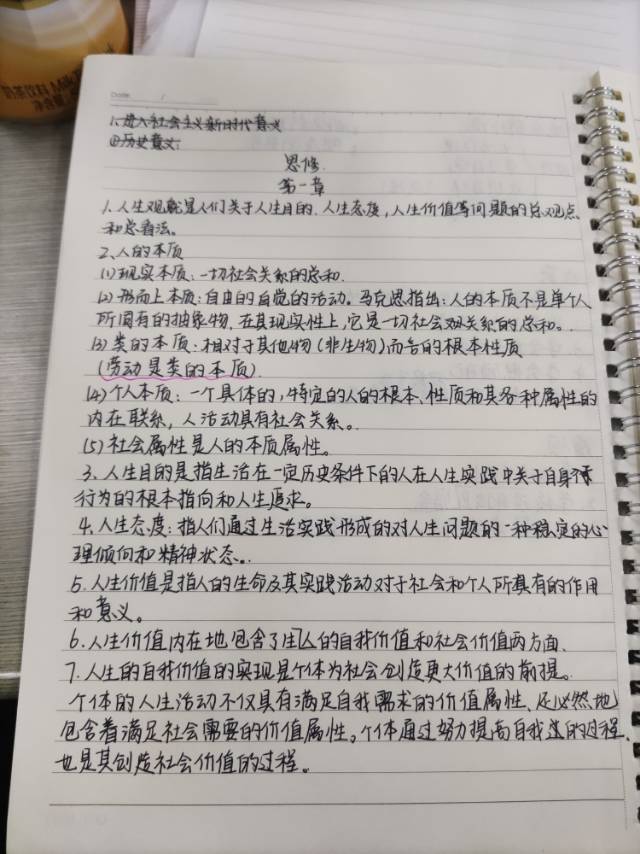 奶茶饮料 Milk
净含量
Date: /
1.进入社会主义新时代意义
①历史意义:
思修.
第一章
1.人生观就是人们关于人生目的、人生态度,人生价值等问题的总观点
和总看法。
2.人的本质
(1)现实本质:一切社会关系的总和.
(2)形而上本质:自由的自觉的活动。马克思指出:人的本质不是单个人
所固有的抽象物,在其现实性上,它是一切社会关系的总和。
(3)类的本质:相对于其他物(非生物)而言的根本性质
(劳动是类的本质).
(4)个人本质:一个具体的,特定的人的根本、性质和其各种属性的
内在联系,人活动具有社会关系。
(5)社会属性是人的本质属性。
3.人生目的是指生活在一定历史条件下的人在人生实践中关于自身
行为的根本指向和人生追求。
4.人生态度:指人们通过生活实践形成的对人生问题的一种稳定的心
理倾向和精神状态。
5.人生价值是指人的生命及其实践活动对于社会和个人所具有的作用
和意义。
6.人生价值内在地包含了人生的自我价值和社会价值两方面.
7.人生的自我价值的实现是个体为社会创造更大价值的前提。
个体的人生活动不仅具有满足自我需求的价值属性、还必然地
包含着满足社会需要的价值属性。个体通过努力提高自我的过程,
也是其创造社会价值的过程。